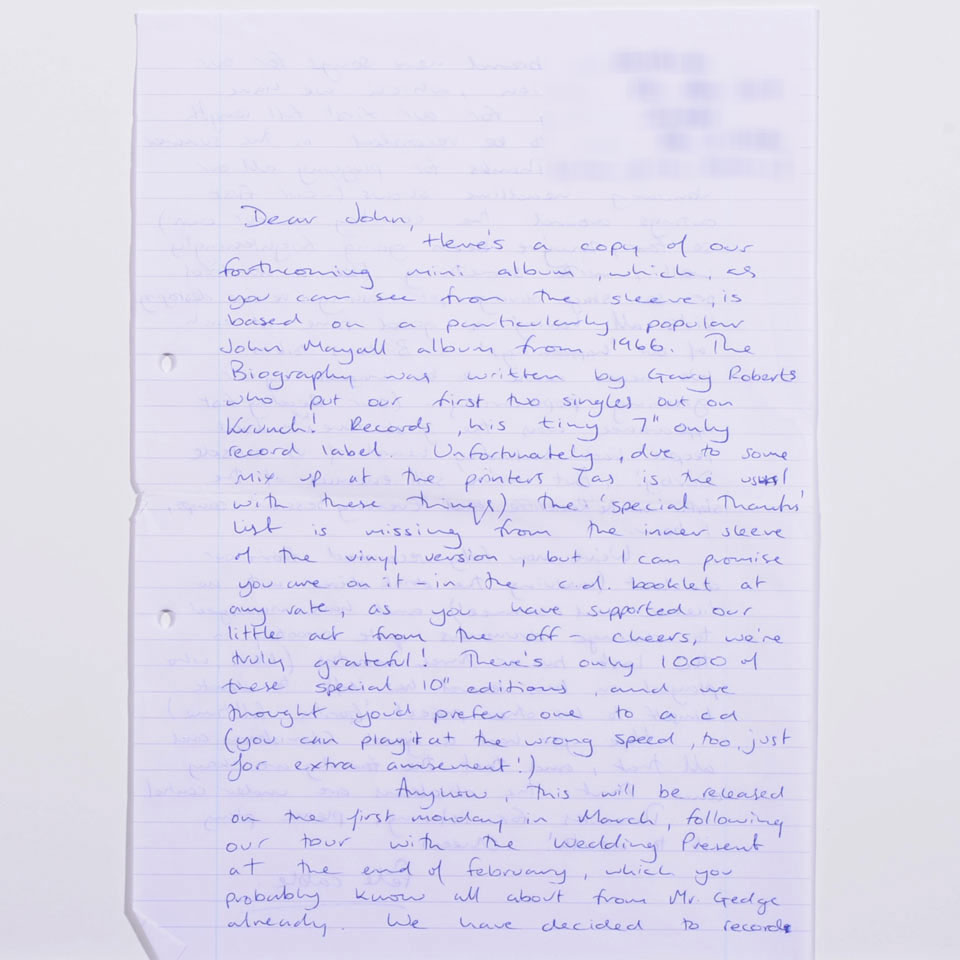 Dear John,
Here's a copy of our
forthcoming mini album, which, as
you can see from the sleeve, is
based on a particularly popular
John Mayall album from 1966. The
Biography was written by Gary Roberts
who put our first two singles out on
Krunch! Records, his tiny 7" only
record label. Unfortunately, due to some
mix up at the printers (as is the usual
with these things) the 'special Thanks'
list is missing from the inner sleeve
of the vinyl version, but I can promise
you are on it - in the c.d. booklet at
any rate, as you have supported our
little act from the off - cheers, we're
truly grateful! There's only 1000 of
these special 10" editions, and we
thought you'd prefer one to a cd
(you can play it at the wrong speed, too, just
for extra amusement!)
Anyhow, this will be released
on the first monday in March, following
our tour with the 'Wedding Present'
at the end of february, which you
probably know all about from Mr. Gedge
already. We have decided to record